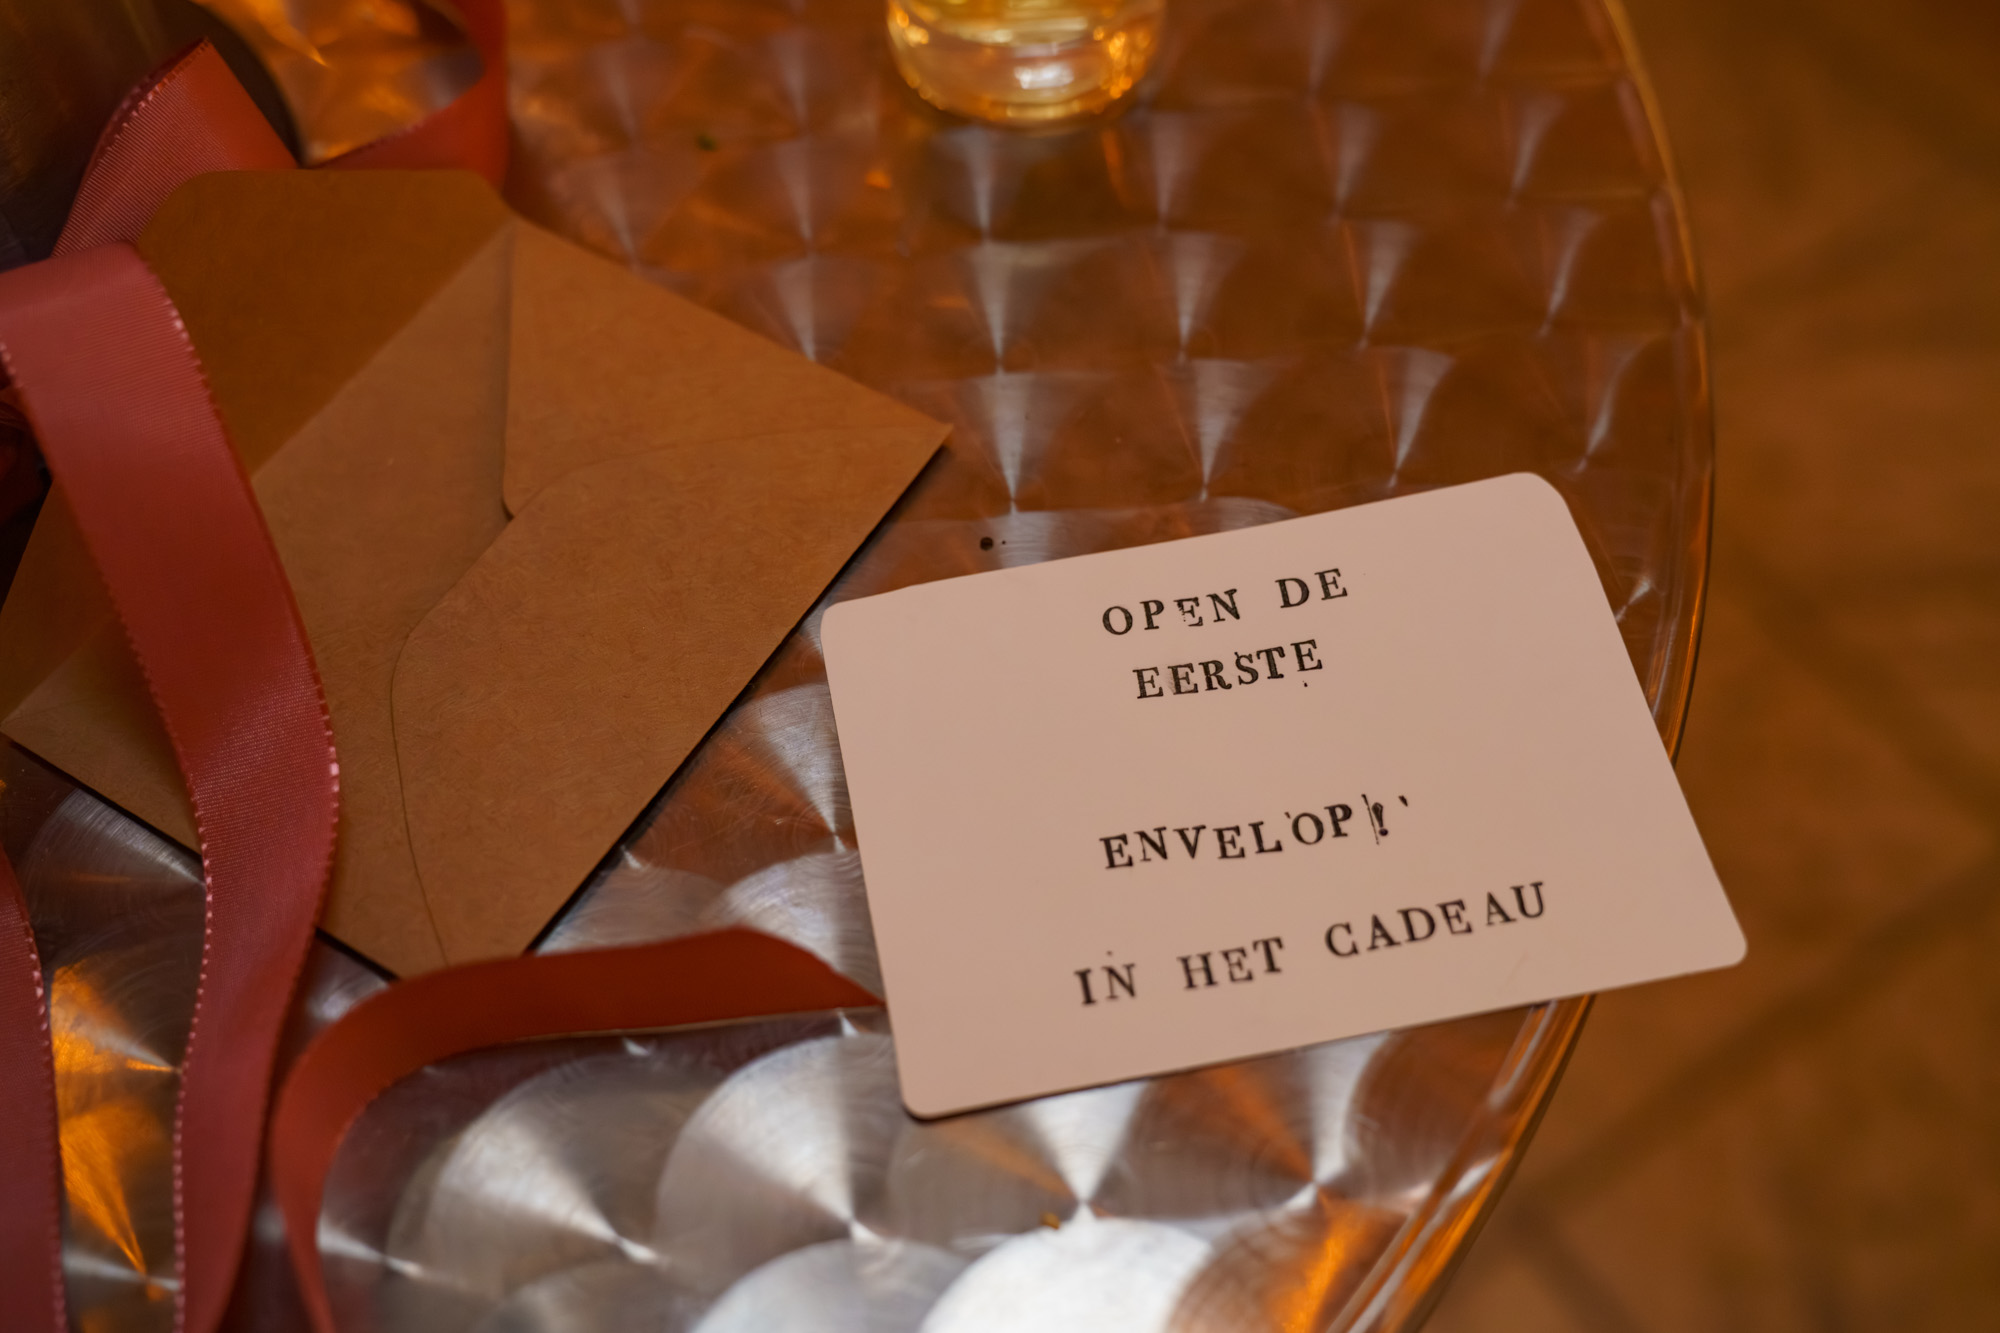 OPEN DE
EERSTE
ENVELOP!
IN HET CADEAU